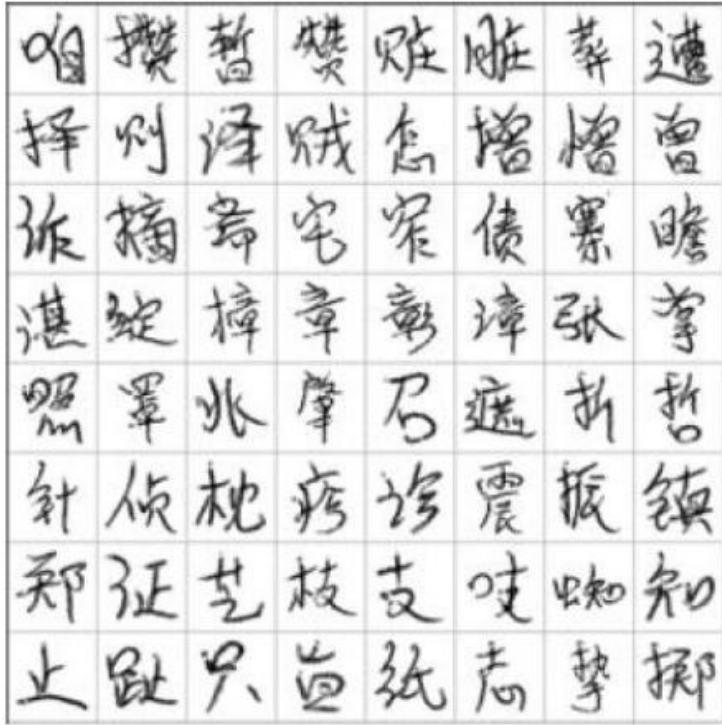 咱攒暂赞赃脏葬遭
择则泽贼怎增憎曾
诈摘斋宅窄债寨瞻
湛绽樟章彰漳张掌
照罩兆肇召遮折哲
针侦枕疹诊震振镇
郑征芝枝支吱蜘知
止趾只旨纸志挚掷